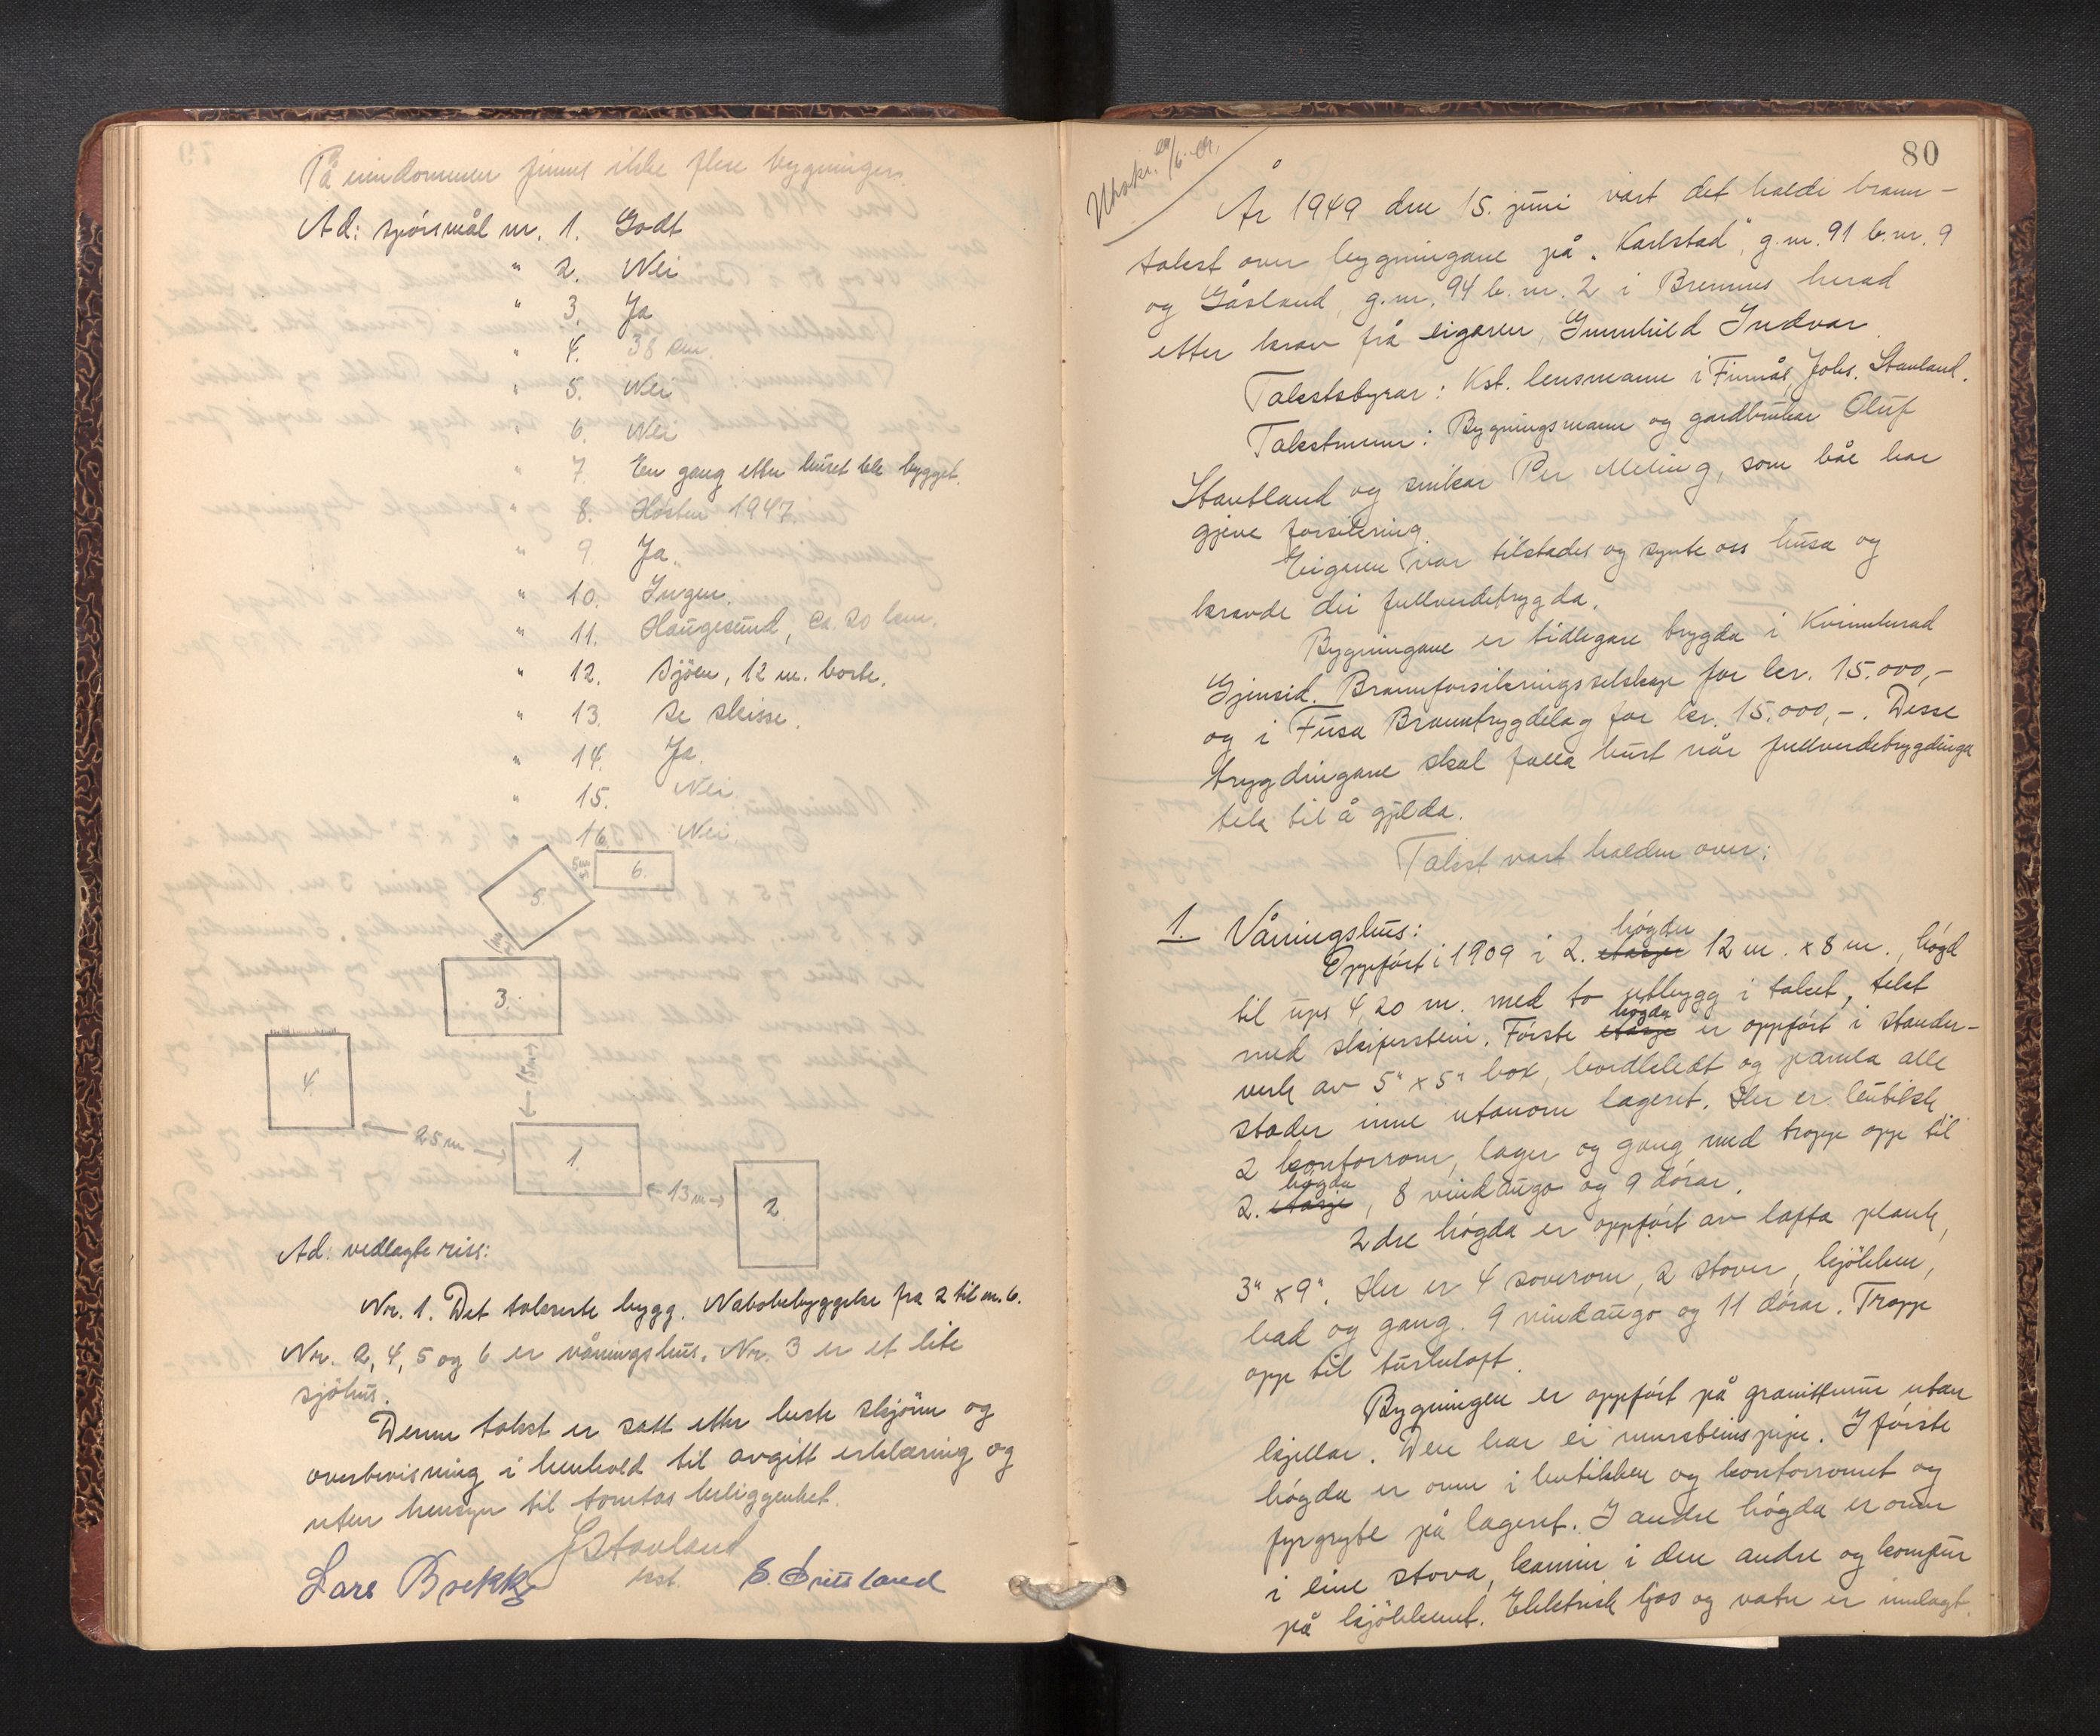 På eiendommen finnes ikke flere bygninger.
Ad: spörsmål nr. 1. Godt
" 2. Nei
" 3. Ja
" 4. 38 km.
" 5. Nei
" 6. Nei
" 7 En gang etter huset ble bygget.
" 8. Hösten 1947.
" 9. Ja.
" 10. Ingen.
" 11. Haugesund, ca. 20 km.
" 12. Sjöen, 12 m. borte.
" 13. Se skisse.
" 14. Ja.
" 15. Nei.
" 16. Nei.
5 m
6.
5.
1 m
3.
4.
15 m
25 m
1.
13 m
2.
Ad: vedlagte riss:
Nr. 1. Det takserte bygg. Nabobebyggelse fra 2 til nr. 6.
Nr. 2, 4, 5 og 6 er våningshus. Nr. 3 er et lite
sjöhus.
Denne takst er satt etter beste skjönn og
overbevisning i henhold til avgitt erklæring og
uten hensyn til tomtas beliggenhet.
J Stavland
Lars Brekke kst. S. Fritsland
80
Utskr. /6.
År 1949 den 15. juni vart det halde brann-
takst over bygningane på "Karlstad", g.nr. 91 b.nr. 9
og Gåsland, g.nr. 94 b.nr. 2 i Bremnes herad
etter krav frå eigaren, Gunnhild Indvær.
Takststyrar: Kst. lensmann i Finnås, Johs. Stavland.
Takstmenn: Bygningsmann og gardbrukar Oluf
Stautland og snikar Per Meling, som båe har
gjeve forsikring.
Eigaren var tilstades og synte oss husa og
kravde dei fullverdetrygda.
Bygningane er tidlegare trygda i Kvinnherad
Gjensid. Brannforsikringsselskap for kr. 15.000,-
og i Fusa Branntrygdelag for kr. 15.000,-. Desse
trygdingane skal falla burt når fullverdetrygdinga
tek til å gjelda.
Takst vart halden over:
1. Våningshus:
högder
Oppfört i 1909 i 2. etasjer 12 m. x 8 m., högd
til ups 4,20 m. med to utbygg i taket, tekt
högda
med skiferstein. Förste etasje er oppfört i stender-
verk av 5" x 5" box, bordkledt og panela alle
stader inne utanom lageret. Her er butikk,
2 kontorrom, lager og gang med tropp opp til
högda
2. etasje, 8 vindaugo og 9 dörar.
2dre högda er oppfört av lafta plank,
3" x 9". Her er 4 soverom, 2 stover, kjökken,
bad og gang. 9 vindaugo og 11 dörar. Tropp
opp til turkeloft.
Bygningen er oppfört på granittmur utan
kjellar. Den har ei mursteinspipe. I förste
högda er omn i butikken og kontorromet og
fyrgryte på lageret. I andre högda er omn
i eine stova, kamin i den andre og komfur
på kjökkenet. Elektrisk ljos og vatn er innlagt.